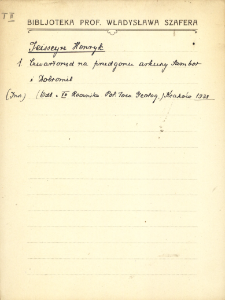 T II
BIBLJOTEKA PROF. WŁADYSŁAWA SZAFERA
Teisseyre Henryk
1. Czwartorzęd na przedgórzu arkuszy Sambor
i Dobromil
(Inw.) (Odb. z IV Rocznika Pol. Tow. Geolog.) Kraków 1928